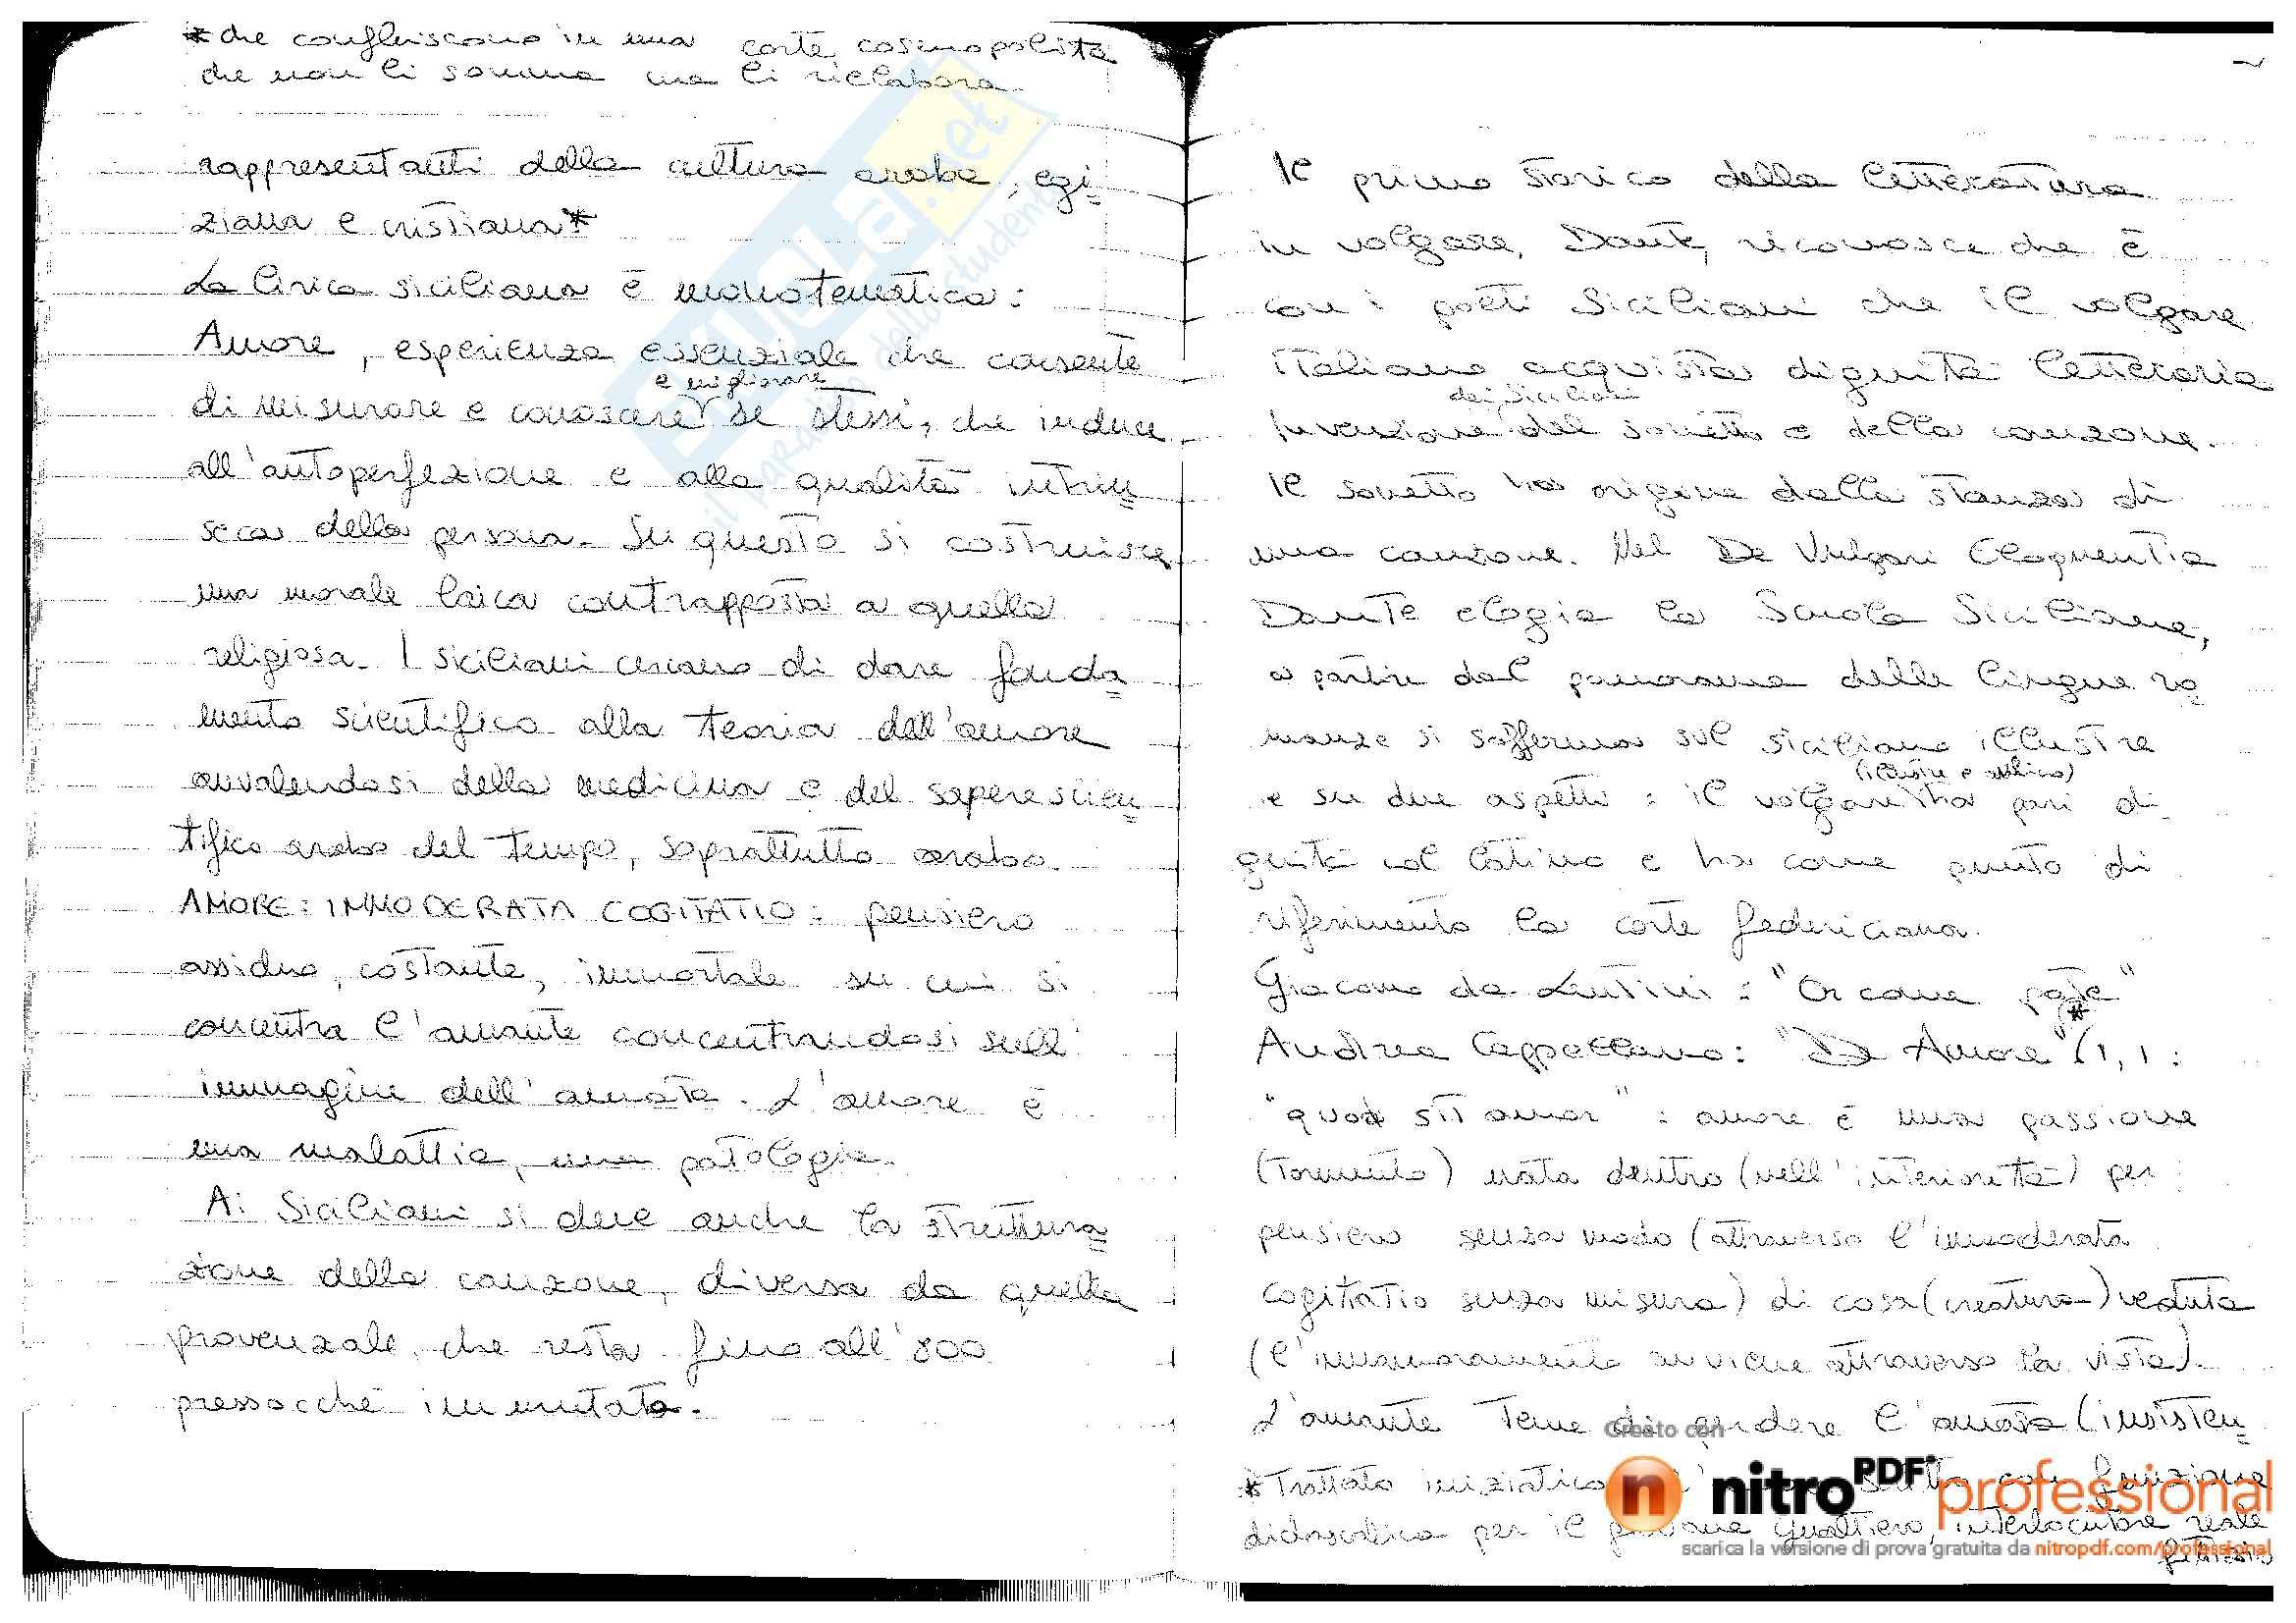 *che confluiscono in una corte cosmopolita
che non li somma ma li rielabora.
rappresentanti della cultura araba, egi=
ziana e cristiana*
La lirica siciliana è monotematica:
Amore, esperienza essenziale che consente
e migliorare
di misurare e conoscere se stessi, che induce
all'autoperfezione e alla qualità intrin=
seca della persona. Su questo si costruisce
una morale laica contrapposta a quella
religiosa. I siciliani cercano di dare fonda=
mento scientifico alla teoria dell'amore
avvalendosi della medicina e del sapere scien=
tifico arabo del tempo, soprattutto arabo.
AMORE: IMMODERATA COGITATIO: pensiero
assiduo, costante, immortale su cui si
concentra l'amante concentrandosi sull'
immagine dell'amata. L'amore è
una malattia, una patologia.
Ai Siciliani si deve anche la struttura=
zione della canzone, diversa da quella
provenzale, che resta fino all'800
pressocchè immutata.
Il primo storico della letteratura
in volgare, Dante, riconosce che è
con i poeti Siciliani che il volgare
italiano acquista dignità letteraria
dei Siciliani
Invenzione del sonetto e della canzone.
Il sonetto ha origine dalla stanza di
una canzone. Nel De Vulgari Eloquentia
Dante elogia la Scuola Siciliana,
a partire dal panorama delle lingue ro=
manze si sofferma sul siciliano illustre
(illustre e aulico)
e su due aspetti: il volgare ha pari di=
gnità col latino e ha come punto di
riferimento la corte federiciana.
Giacomo da Lentini: "Or come pote"
Andrea Cappellano: "De Amore"* (1, 1:
"quod sit amor": amore è una passione
(tormento) nata dentro (nell'interiorità) per
pensiero senza modo (attraverso l'immoderata
cogitatio senza misura) di cosa (creatura) veduta
(l'innamoramento avviene attraverso la vista).
L'amante teme di perdere l'amata (insisten=
*Trattato iniziatico con funzione
didascalica per il giovane Gualtiero, interlocutore reale
fittizio
SKUOLA.net
il paradiso dello studente
Creato con
nitroPDF professional
scarica la versione di prova gratuita da nitropdf.com/professional